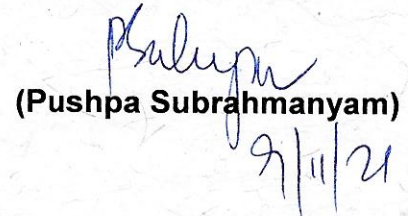 (Pushpa Subrahmanyam)
9/11/21